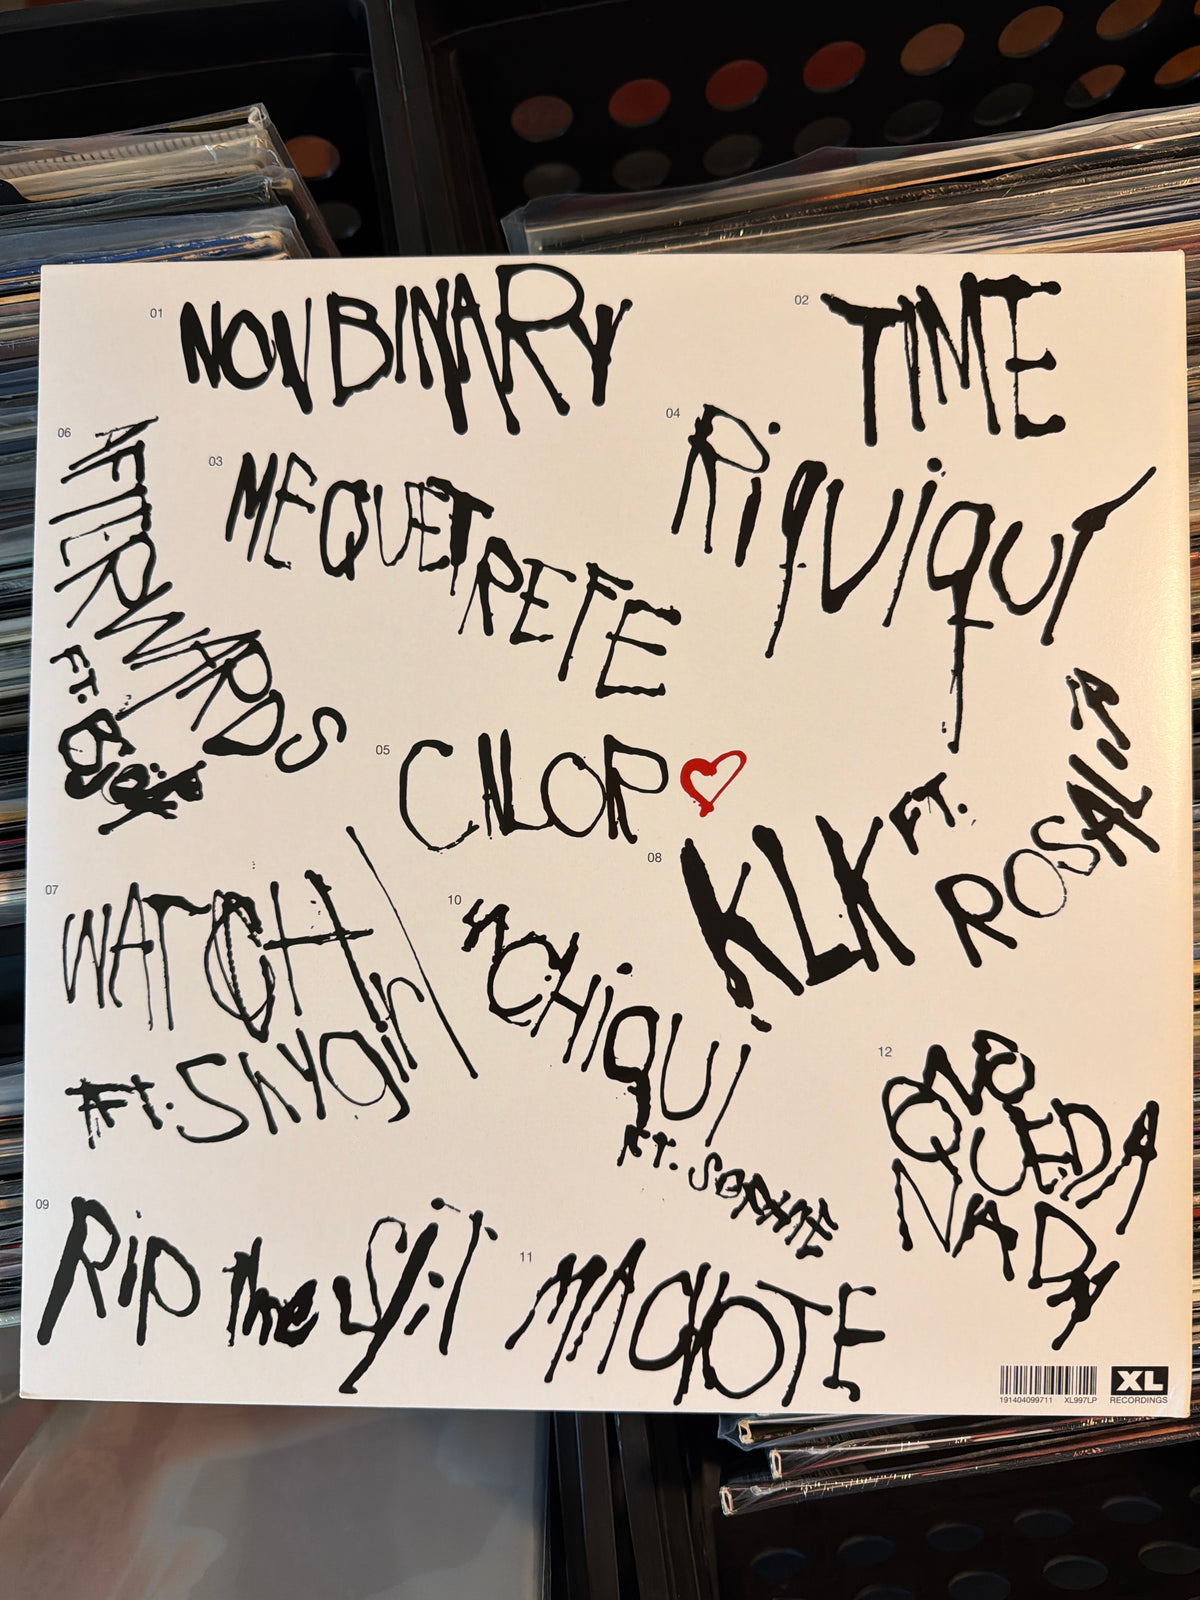 01 NONBINARY
02 TIME
03 MEQUETREFE
04 RiquiquI
05 CALOR
06 AFTERWARDS
FT. Björk
07 WATCH
FT. SHYGirl
08 KLK FT.
ROSALÍA
09 Rip the Slit
10 LA CHIQUI
FT. SOPHIE
11 MACHOTE
12 NO
QUEDA
NADA
191404099711 XL997LP
XL
RECORDINGS